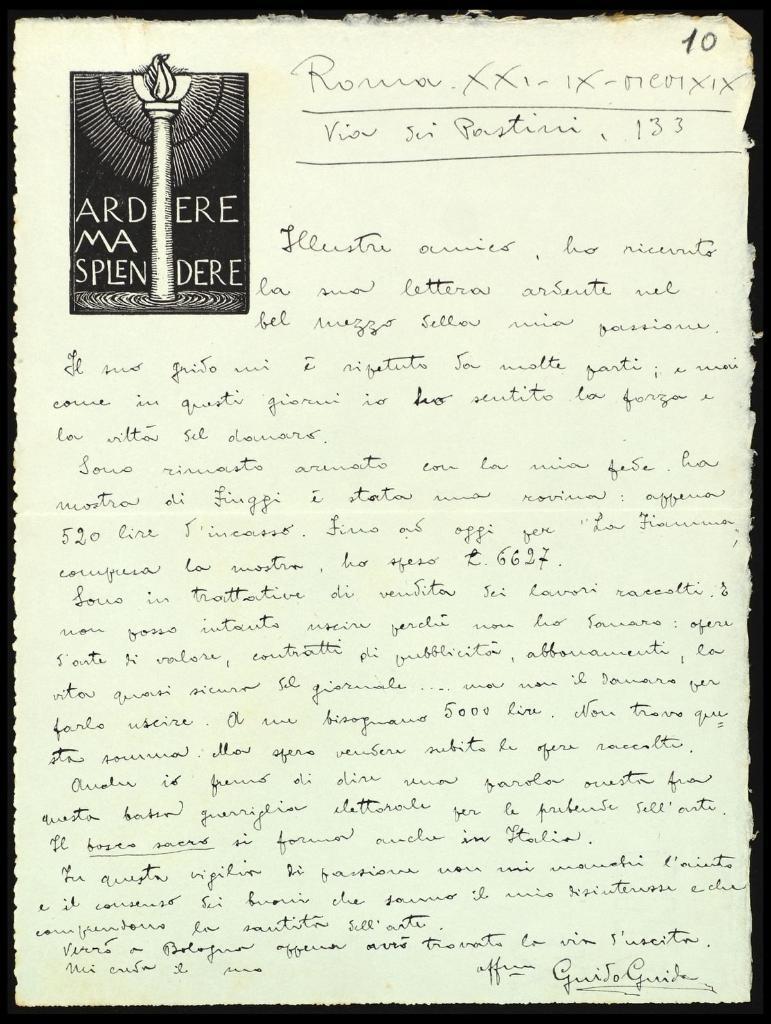 10
Roma. XXI - IX - MCMXIX
Via dei Pastini, 133
ARDERE
MA
SPLENDERE
Illustre amico, ho ricevuto
la sua lettera ardente nel
bel mezzo della mia passione.
Il suo grido mi è ripetuto da molte parti; e mai
come in questi giorni io ho sentito la forza e
la viltà del danaro.
Sono rimasto arenato con la mia fede. La
mostra di Fiuggi è stata una rovina: appena
520 lire d'incasso. Fino ad oggi per "La Fiamma",
compresa la mostra, ho speso £. 6627.
Sono in trattative di vendita dei lavori raccolti. E
non posso intanto uscire perchè non ho danaro: opere
d'arte di valore, contratti di pubblicità, abbonamenti, la
vita quasi sicura del giornale .... ma non il danaro per
farlo uscire. A me bisognano 5000 lire. Non trovo que=
sta somma. Ma spero vendere subito le opere raccolte.
Anche io fremo di dire una parola onesta fra
questa bassa guerriglia elettorale per le prebende dell'arte.
Il bosco sacro si forma anche in Italia.
In questa vigilia di passione non mi manchi l'aiuto
e il consenso dei buoni che sanno il mio disinteresse e che
comprendono la santità dell'arte.
Verrò a Bologna appena avrò trovato la via d'uscita.
Mi creda il suo affmo Guido Guida